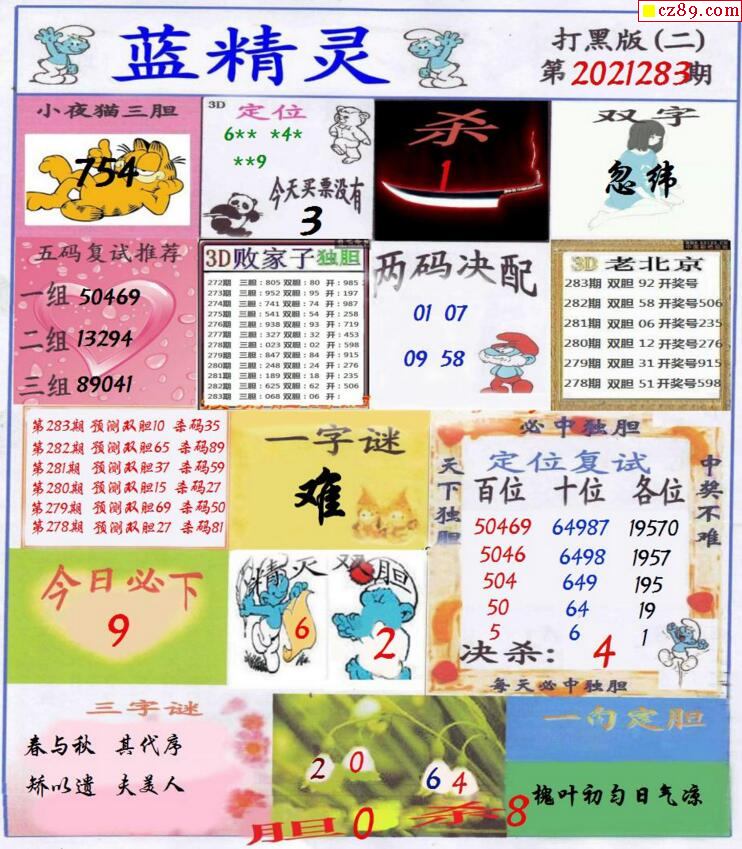 cz89.com
蓝精灵
打黑版(二)
第2021283期
小夜猫三胆
754
3D 定位
6** *4*
**9
今天买票没有
3
杀
1
双字
忽纬
五码复试推荐
一组 50469
二组 13294
三组 89041
3D败家子独胆
272期 三胆：805 双胆：80 开：985
273期 三胆：952 双胆：95 开：197
274期 三胆：741 双胆：74 开：987
275期 三胆：541 双胆：54 开：258
276期 三胆：938 双胆：93 开：719
277期 三胆：327 双胆：32 开：453
278期 三胆：023 双胆：02 开：598
279期 三胆：847 双胆：84 开：915
280期 三胆：248 双胆：24 开：276
281期 三胆：189 双胆：18 开：235
282期 三胆：625 双胆：62 开：506
283期 三胆：068 双胆：06 开：
两码决配
01 07
09 58
3D 老北京
283期 双胆 92 开奖号
282期 双胆 58 开奖号506
281期 双胆 06 开奖号235
280期 双胆 12 开奖号276
279期 双胆 31 开奖号915
278期 双胆 51 开奖号598
第283期 预测双胆10 杀码35
第282期 预测双胆65 杀码89
第281期 预测双胆37 杀码59
第280期 预测双胆15 杀码27
第279期 预测双胆69 杀码50
第278期 预测双胆27 杀码81
一字谜
难
必中独胆
天下独胆
中奖不难
定位复试
百位 十位 各位
50469 64987 19570
5046 6498 1957
504 649 195
50 64 19
5 6 1
决杀： 4
每天必中独胆
今日必下
9
精灵双胆
6
2
三字谜
春与秋 其代序
矫以遗 夫美人
2 0
6 4
胆0 杀8
一句定胆
槐叶初匀日气凉